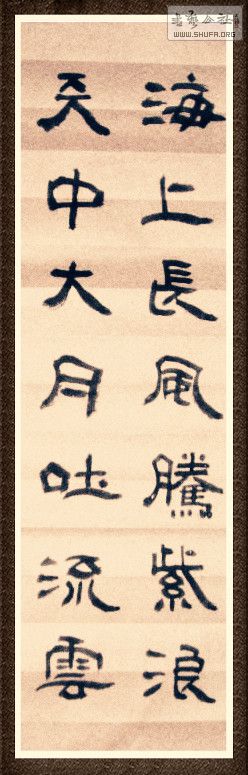 海上長風騰紫浪
天中大月吐流雲
WWW.SHUFA.ORG